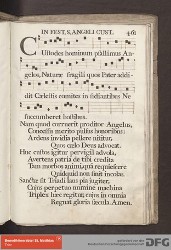 IN FEST. S. ANGELI CUST. 461
Custodes hominum psallimus An-
gelos, Naturæ fragili quos Pater addi-
dit Cælestis comites in sidiantibus Ne
succumberet hostibus.
Nam quod corruerit proditor Angelus,
Concessis merito pulsus honoribus:
Ardens invidia pellere nititur,
Quos cœlo Deus advocat.
Huc custos igitur pervigil advola,
Avertens patria de tibi credita
Tam morbos animi, quam requiescere
Quidquid non sinit incolas.
Sanctæ sit Triadi laus pia jugiter,
Cujus perpetuo numine machina
Triplex hæc regitur, cujus in omnia
Regnat gloria sæcula. Amen.
DFG